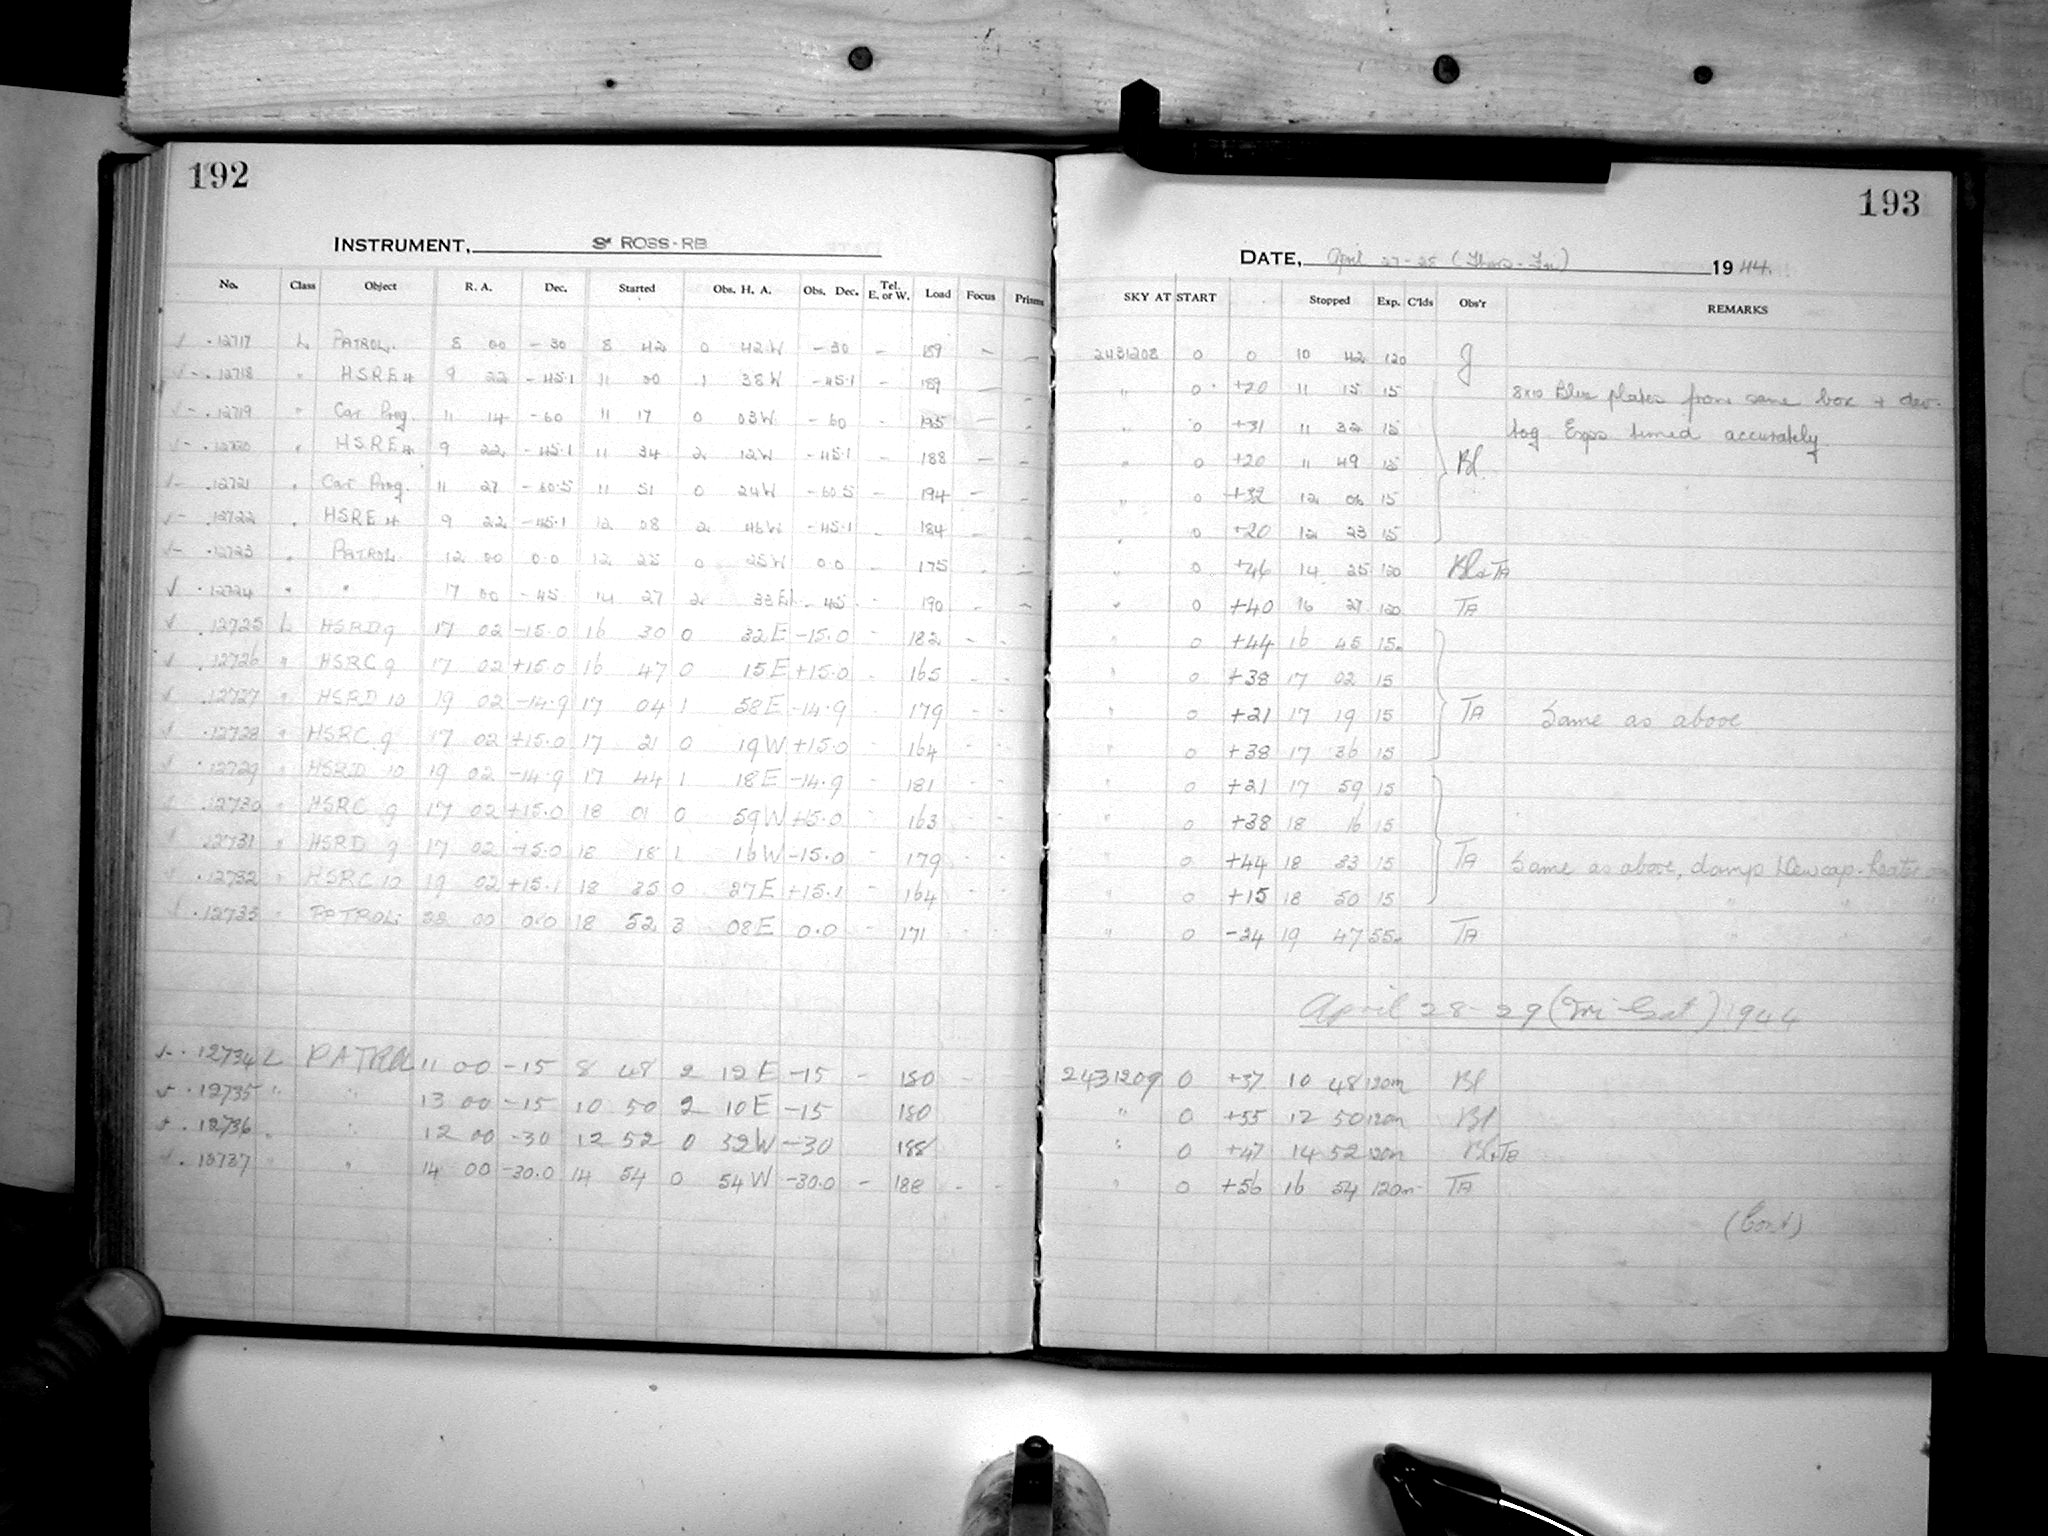 192
INSTRUMENT, ROSS-RB
No. Class Object R. A. Dec. Started Obs. H. A. Obs. Dec. Tel. E. or W. Load Focus Prisms
.12717 L PATROL. 8 00 -30 8 42 0 42W -30 - 189 - -
.12718 " HSRE4 9 22 -45.1 11 00 1 38W -45.1 - 189 -
.12719 " Car Prog. 11 14 -60 11 17 0 03W -60 - 195 - -
.12720 " HSRE4 9 22 -45.1 11 34 2 12W -45.1 - 188 - -
.12721 " Car Prog. 11 27 -60.5 11 51 0 24W -60.5 - 194 - -
.12722 " HSRE4 9 22 -45.1 12 08 2 46W -45.1 - 184 - -
.12723 " PATROL 12 00 0.0 12 25 0 25W 0.0 - 175 - -
.12724 " " 17 00 -45 14 27 2 33E -45 - 190 - -
.12725 L HSRD9 17 02 -15.0 16 30 0 32E -15.0 - 182 - -
.12726 " HSRC9 17 02 +15.0 16 47 0 15E +15.0 - 165 - -
.12727 " HSRD 10 19 02 -14.9 17 04 1 58E -14.9 - 179 - -
.12728 " HSRC 9 17 02 +15.0 17 21 0 19W +15.0 - 164 - -
.12729 " HSRD 10 19 02 -14.9 17 44 1 18E -14.9 - 181 - -
.12730 " HSRC 9 17 02 +15.0 18 01 0 59W +15.0 - 163 - -
.12731 " HSRD 9 17 02 -15.0 18 18 1 16W -15.0 - 179 - -
.12732 " HSRC 10 19 02 +15.1 18 35 0 27E +15.1 - 164 - -
.12733 " PATROL 22 00 0.0 18 52 3 08E 0.0 - 171 - -
.12734 L PATROL 11 00 -15 8 48 2 12E -15 - 180 -
.12735 " " 13 00 -15 10 50 2 10E -15 180
.12736 " " 12 00 -30 12 52 0 52W -30 188
.12737 " " 14 00 -30.0 14 54 0 54W -30.0 - 188 - -
193
DATE, April 27-28 (Thurs-Fri) 1944.
SKY AT START Stopped Exp. C'lds Obs'r REMARKS
2431208 0 0 10 42 120 J
" 0 +20 11 15 15 8x10 Blue plates from same box + dev.
" 0 +31 11 32 15 tog. Exps timed accurately.
" 0 +20 11 49 15 Bl.
" 0 +32 12 06 15
" 0 +20 12 23 15
" 0 +46 14 25 120 Bl+TA
" 0 +40 16 27 120 TA
" 0 +44 16 45 15
" 0 +38 17 02 15
" 0 +21 17 19 15 TA Same as above
" 0 +38 17 36 15
" 0 +21 17 59 15
" 0 +38 18 16 15
" 0 +44 18 33 15 TA Same as above, damp Dewcap-heater
" 0 +15 18 50 15 " " "
" 0 -24 19 47 55m TA " " "
April 28-29 (Fri-Sat) 1944
2431209 0 +37 10 48 120m Bl
" 0 +55 12 50 120m Bl
" 0 +47 14 52 120m Bl+TA
" 0 +56 16 54 120m TA
(Cont)